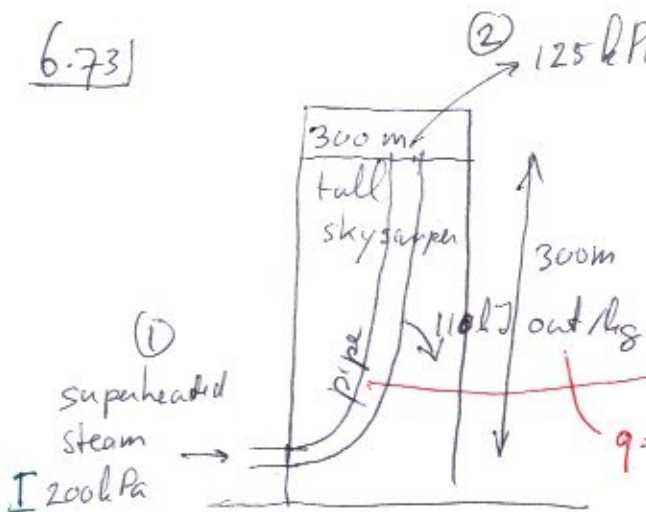 6.73
② 125 kPa
300 m
tall
skyscraper
300m
110 kJ out/kg
pipe
①
superheated
steam
200 kPa
q=